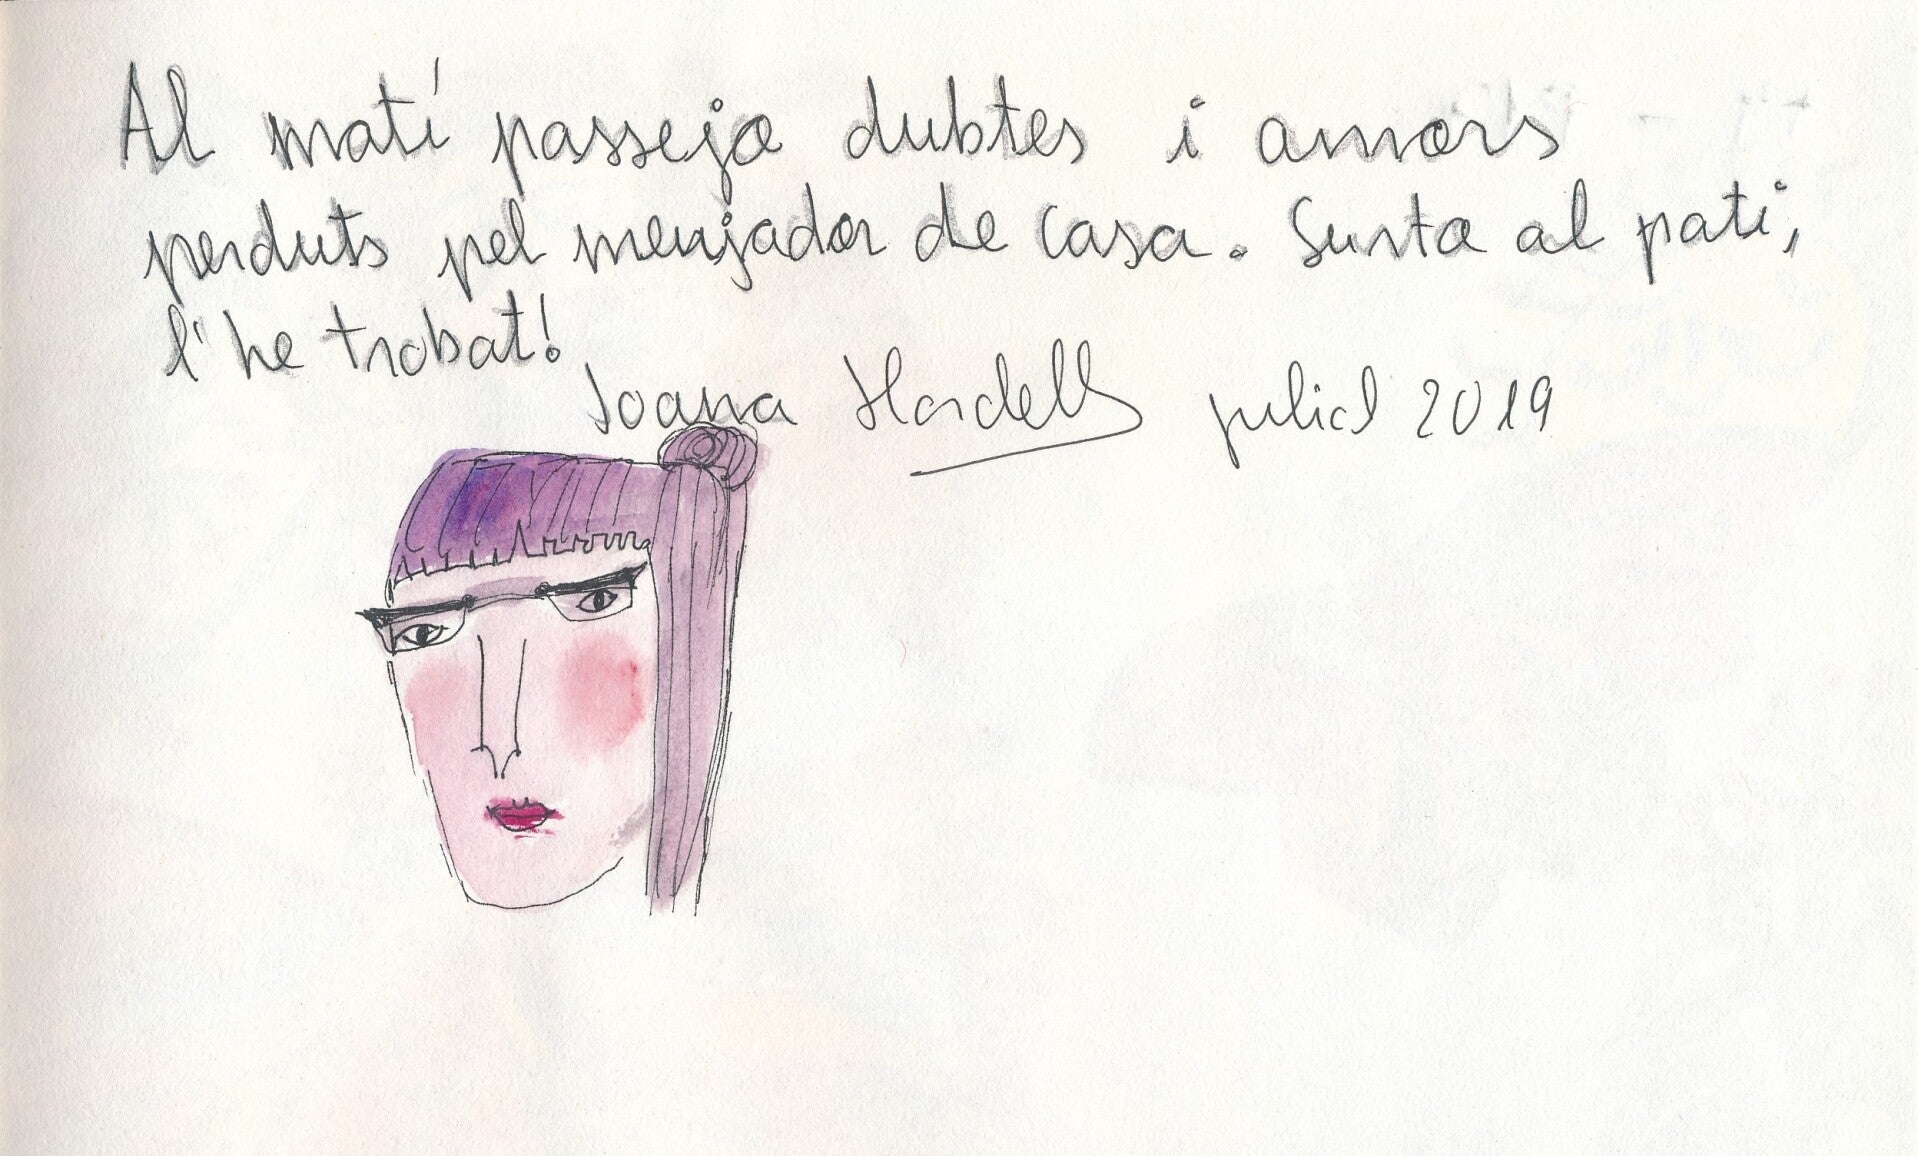 Al matí passejo dubtes i amors
perduts pel menjador de casa. Surto al pati,
l'he trobat!
Joana juliol 2019